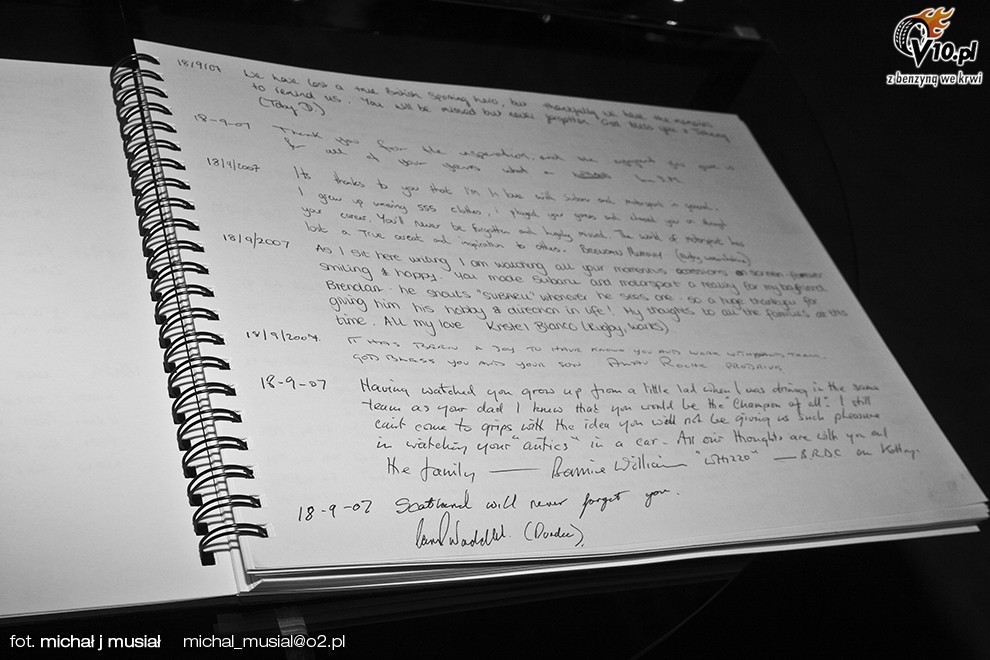 V10.pl
z benzyną we krwi
18/9/07 We have lost a true British Sporting hero, but thankfully we have the memories
to remind us. You will be missed but never forgotten. God bless you &
(Toby D.)
18-9-07 Thank you for the inspiration, and the enjoyment you gave us
for all of your years what a
18/9/2007 Its thanks to you that I'm in love with Subaru and motorsport in general.
I grew up wearing 555 clothes, I played your games and cheered you on through
your career. You'll never be forgotten and hugely missed. The world of motorsport has
lost a True and inspiration to others. Brendan
18/9/2007 As I sit here writing I am watching all your momentus occessions on screen - forever
smiling & happy. You made Subaru and motorsport a reality for my boyfriend
Brendan - he shouts "SUBARU" whenever he sees one - so a huge thankyou for
giving him his hobby & direction in life! My thoughts to all the families at this
time. All my love Kristel Bianco (Rugby, Warks)
18/9/2007. IT HAS BEEN A JOY TO HAVE KNOW YOU AND WORK WITH
GOD BLESS YOU AND YOUR SON ROCHE PRODRIVE
18-9-07 Having watched you grow up from a little lad when I was driving in the same
team as your dad I knew that you would be the "Champion of all". I still
can't come to grips with the idea you will not be giving us such pleasure
in watching your "antics" in a car - All our thoughts are with you and
the family — Barrie Williams "WHIZZO" — B.R.D.C.
18-9-07 Scotland will never forget you.
(Dundee).
fot. michał j musiał michal_musial@o2.pl